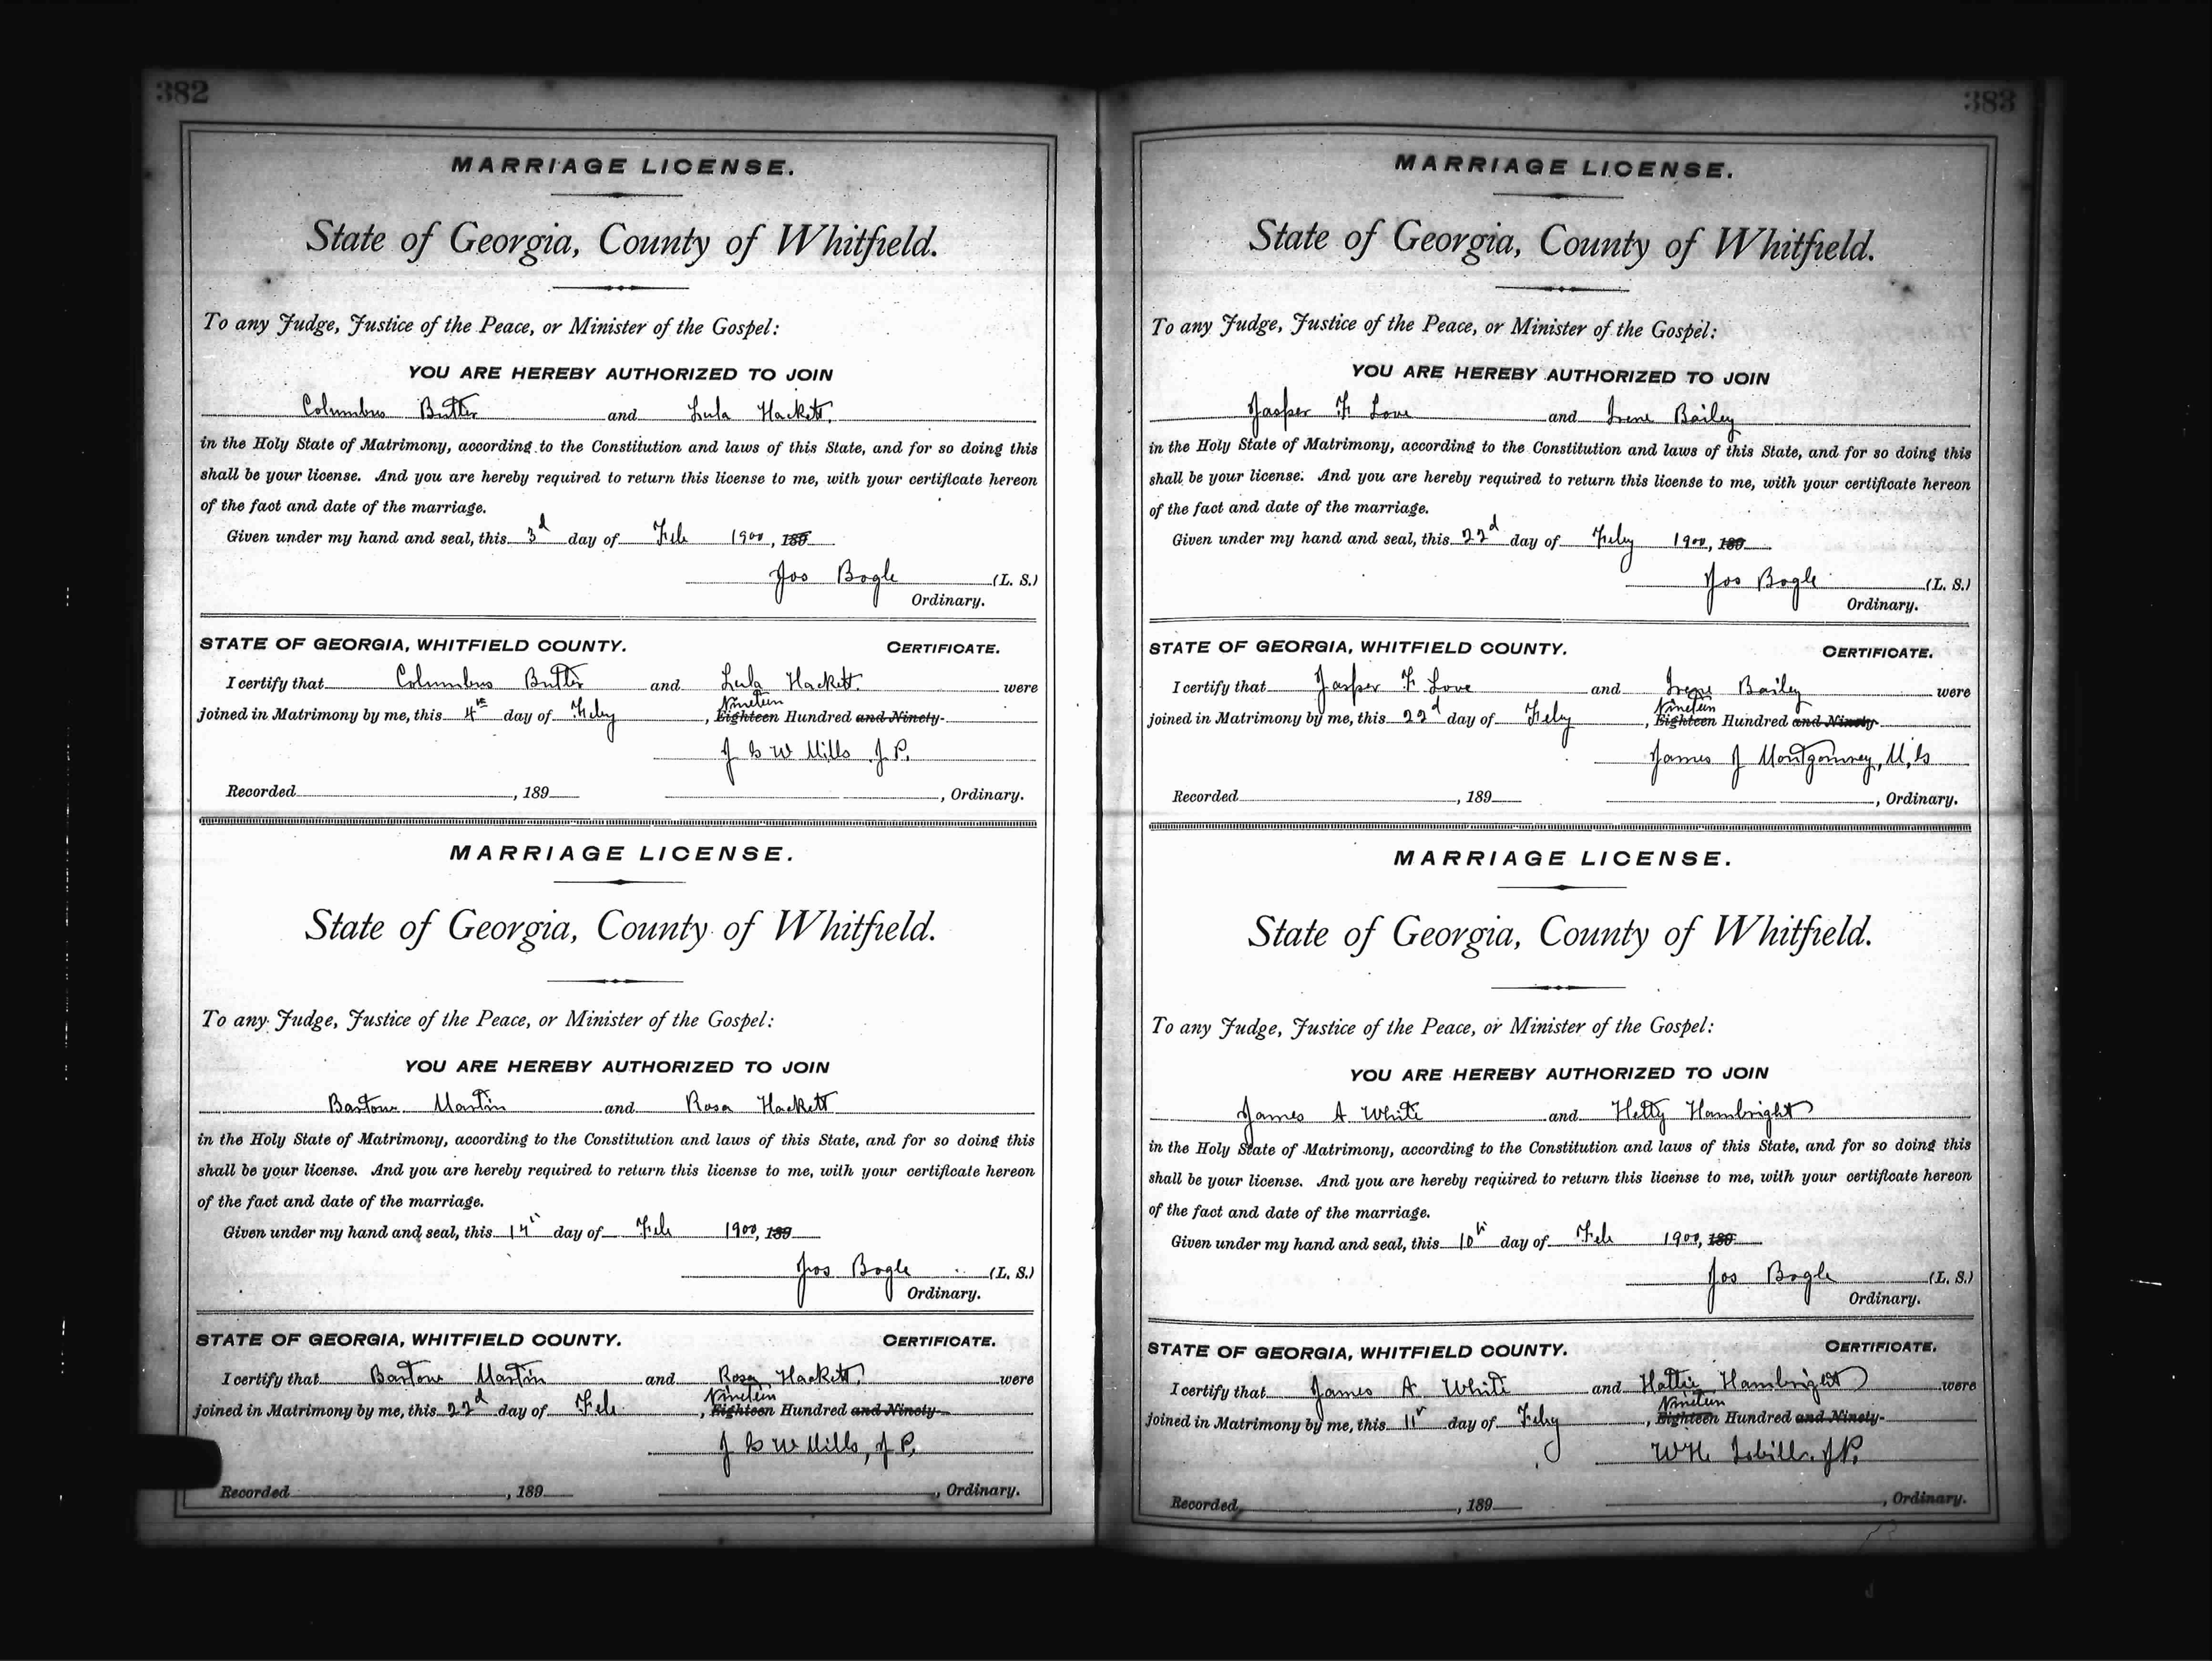 382
MARRIAGE LICENSE.
State of Georgia, County of Whitfield.
To any Judge, Justice of the Peace, or Minister of the Gospel:
YOU ARE HEREBY AUTHORIZED TO JOIN
Columbus Butler and Lula Hackett.
in the Holy State of Matrimony, according to the Constitution and laws of this State, and for so doing this
shall be your license. And you are hereby required to return this license to me, with your certificate hereon
of the fact and date of the marriage.
Given under my hand and seal, this 3d day of Feb 1900, 189
Jos Bogle (L. S.)
Ordinary.
STATE OF GEORGIA, WHITFIELD COUNTY. CERTIFICATE.
I certify that Columbus Butler and Lula Hackett. were
Nineteen
joined in Matrimony by me, this 4th day of Feby , Eighteen Hundred and Ninety-
J G W Mills J. P.
Recorded , 189 , Ordinary.
MARRIAGE LICENSE.
State of Georgia, County of Whitfield.
To any Judge, Justice of the Peace, or Minister of the Gospel:
YOU ARE HEREBY AUTHORIZED TO JOIN
Bartow Martin and Rosa Hackett
in the Holy State of Matrimony, according to the Constitution and laws of this State, and for so doing this
shall be your license. And you are hereby required to return this license to me, with your certificate hereon
of the fact and date of the marriage.
Given under my hand and seal, this 14th day of Feb 1900, 189
Jos Bogle (L. S.)
Ordinary.
STATE OF GEORGIA, WHITFIELD COUNTY. CERTIFICATE.
I certify that Bartow Martin and Rosa Hackett. were
Nineteen
joined in Matrimony by me, this 22d day of Feb. , Eighteen Hundred and Ninety-
J G W Mills, J. P.
Recorded , 189 , Ordinary.
383
MARRIAGE LICENSE.
State of Georgia, County of Whitfield.
To any Judge, Justice of the Peace, or Minister of the Gospel:
YOU ARE HEREBY AUTHORIZED TO JOIN
Jasper F Love and Irene Bailey
in the Holy State of Matrimony, according to the Constitution and laws of this State, and for so doing this
shall be your license. And you are hereby required to return this license to me, with your certificate hereon
of the fact and date of the marriage.
Given under my hand and seal, this 22d day of Feby 1900, 189
Jos Bogle (L. S.)
Ordinary.
STATE OF GEORGIA, WHITFIELD COUNTY. CERTIFICATE.
I certify that Jasper F Love and Irene Bailey were
Nineteen
joined in Matrimony by me, this 22d day of Feby , Eighteen Hundred and Ninety-
James J Montgomrey, M, G
Recorded , 189 , Ordinary.
MARRIAGE LICENSE.
State of Georgia, County of Whitfield.
To any Judge, Justice of the Peace, or Minister of the Gospel:
YOU ARE HEREBY AUTHORIZED TO JOIN
James A White and Hetty Hambright
in the Holy State of Matrimony, according to the Constitution and laws of this State, and for so doing this
shall be your license. And you are hereby required to return this license to me, with your certificate hereon
of the fact and date of the marriage.
Given under my hand and seal, this 10th day of Feb 1900, 189
Jos Bogle (L. S.)
Ordinary.
STATE OF GEORGIA, WHITFIELD COUNTY. CERTIFICATE.
I certify that James A. White and Hattie Hambright were
Nineteen
joined in Matrimony by me, this 11th day of Feby , Eighteen Hundred and Ninety-
W H. J. P.
Recorded , 189 , Ordinary.